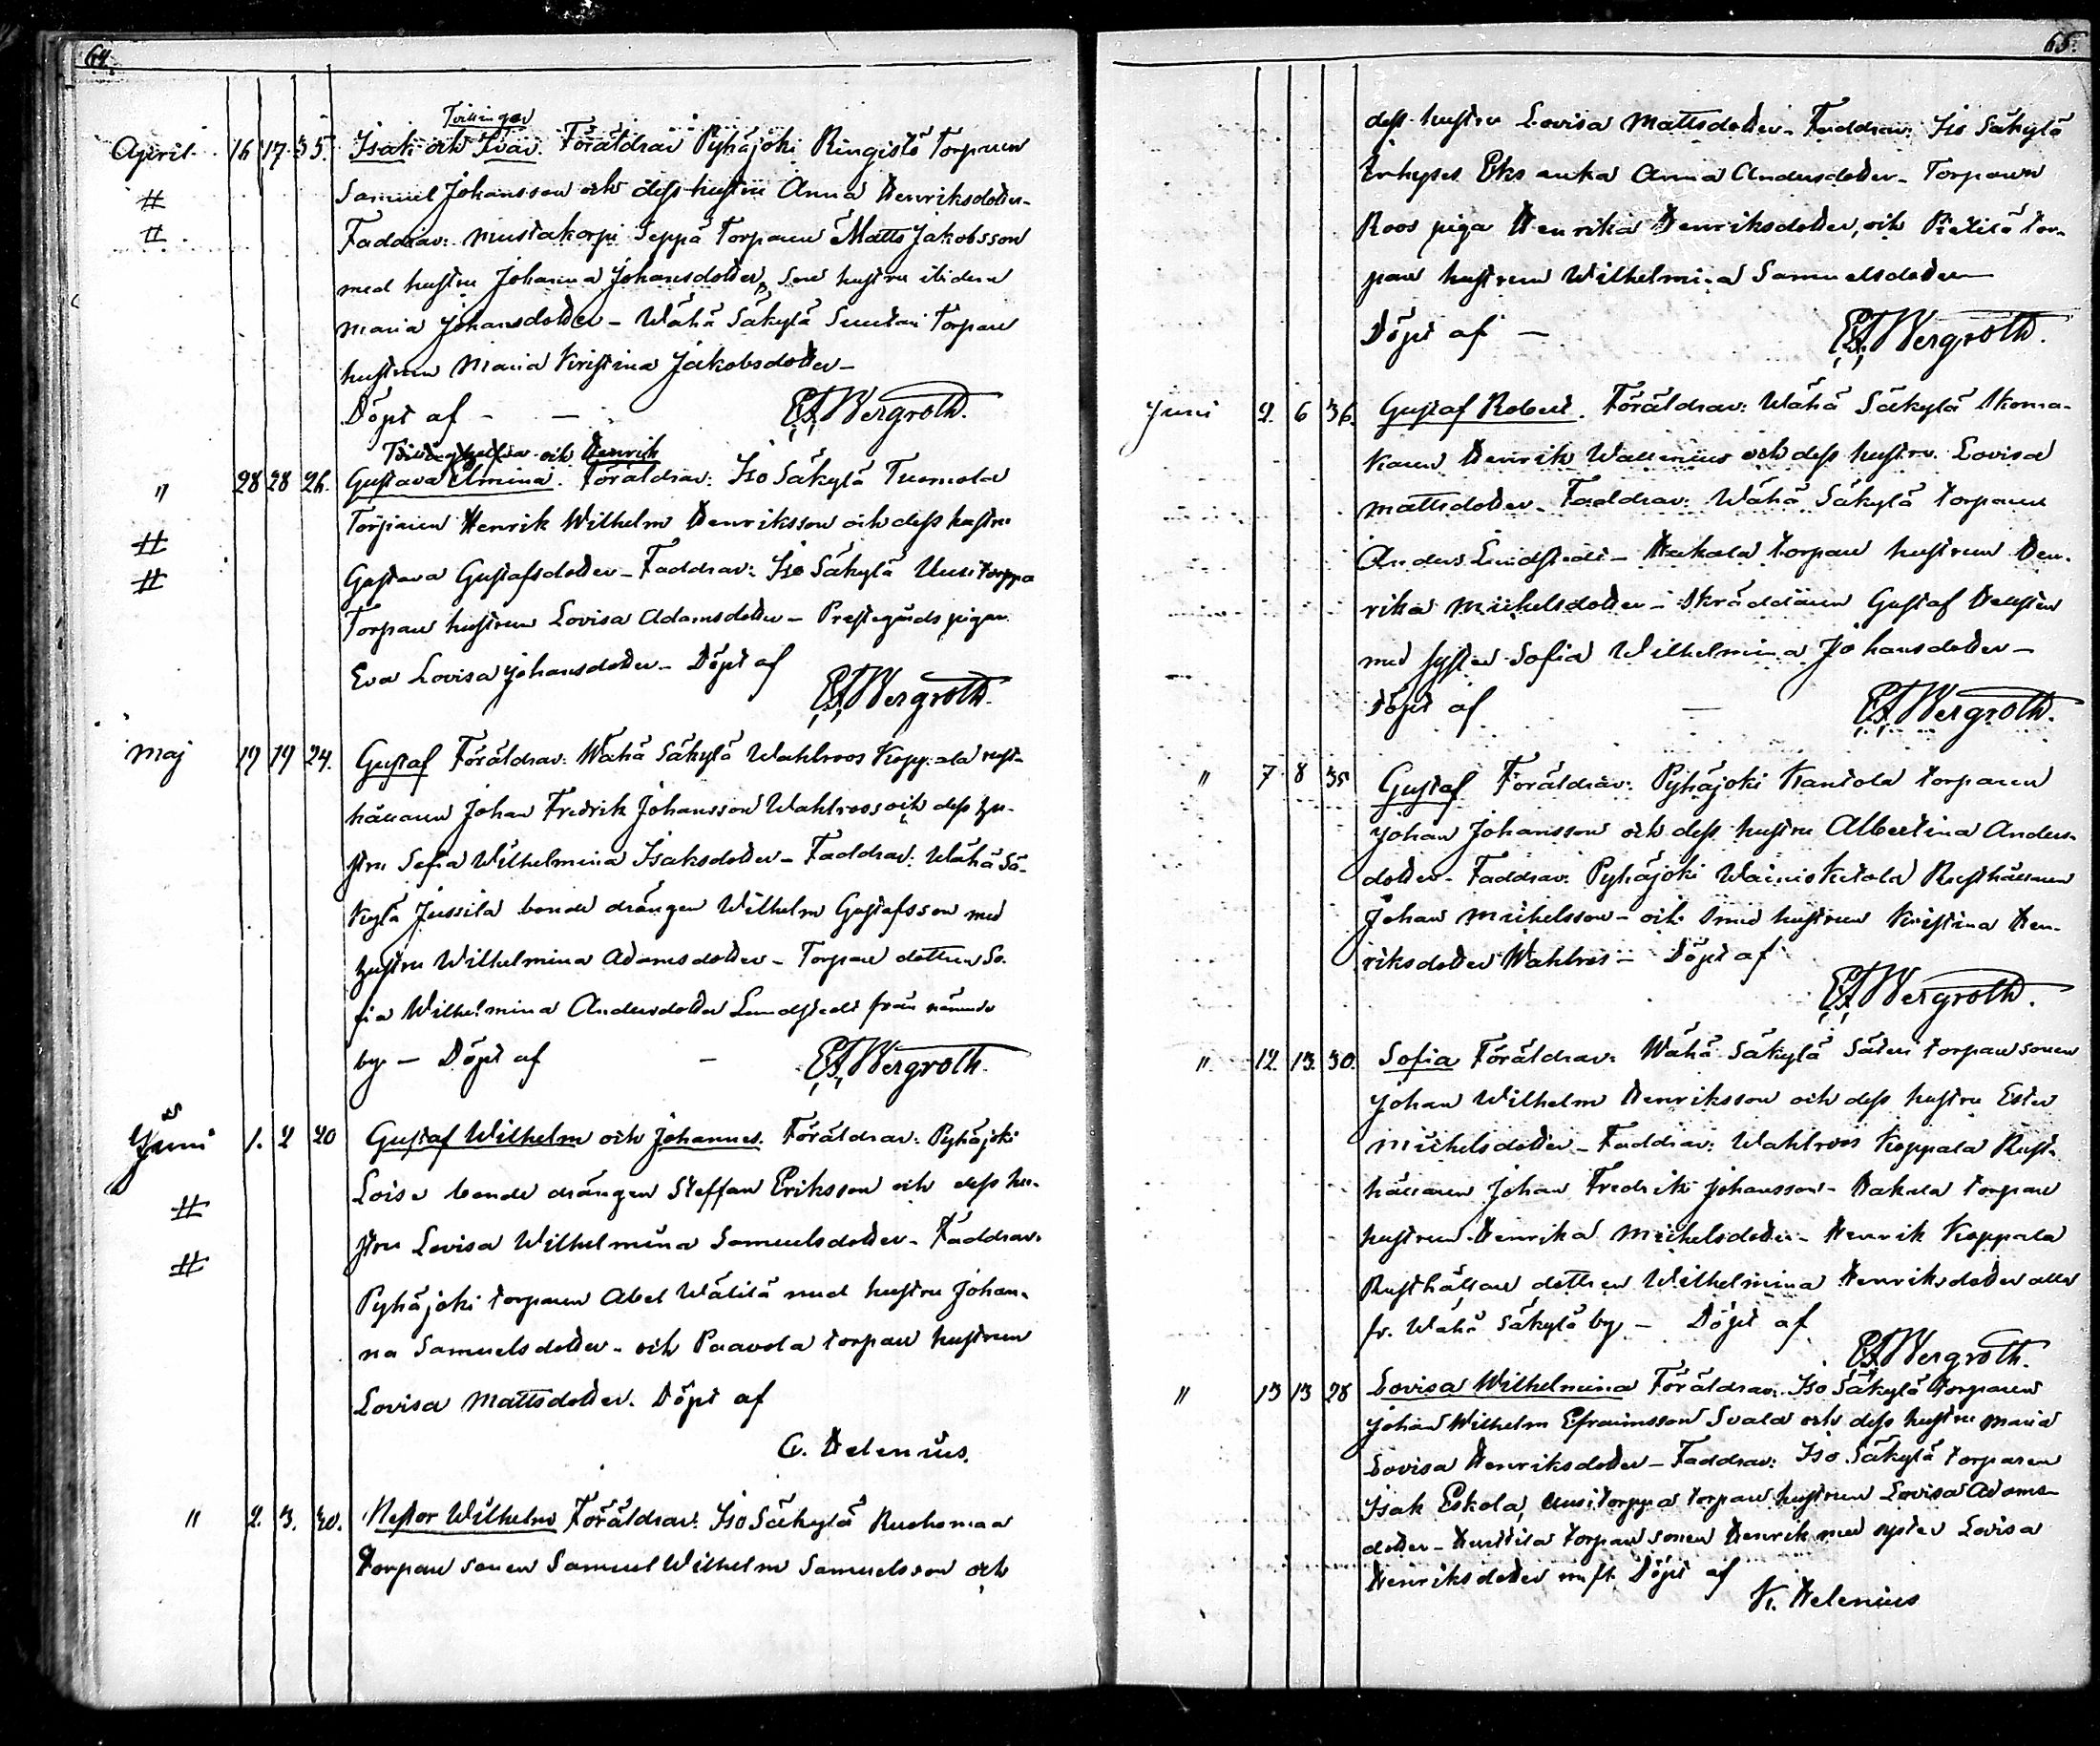 64.
Tvillingar
April 16 17 35. Isak och Ivar. Föräldrar Pyhäjoki Ringistö Torparen
Samuel Johansson och dess hustru Anna Henriksdotter-
Faddrar: Mustakorpi Seppä Torparen Matts Jakobsson
med hustru Johanna Johansdotter, Son hustru ibidem
Maria Johansdotter - Wähä Säkylä Torpare
hustrun Maria Kristina Jakobsdotter -
Döpt af - - E.F. Bergroth.
och Henrik
" 28 28 26. Gustava Elmina. Föräldrar: Iso Säkylä Tuomola
Torparen Henrik Wilhelm Henriksson och dess hustru
Gustava Gustafsdotter - Faddrar: Iso Säkylä Uusitorppa
Torpare hustrun Lovisa Adamsdotter - Prestegårds pigan
Eva Lovisa Johansdotter - Döpt af
E.F. Bergroth.
Maj 19 19 24. Gustaf Föräldrar: Wähä Säkylä Wahlroos Koppala rust-
hållaren Johan Fredrik Johansson Wahlroos och dess hu-
stru Sofia Wilhelmina Isaksdotter - Faddrar: Wähä Sä-
kylä Jussila bonde drängen Wilhelm Gustafsson med
hustru Wilhelmina Adamsdotter - Torpare dottren So-
fia Wilhelmina Andersdotter Lundstedt från nämnde
by - Döpt af - E.F. Bergroth.
Juni 1. 2 20 Gustaf Wilhelm och Johannes. Föräldrar: Pyhäjoki
Loise bonde drängen Steffan Eriksson och dess hu-
stru Lovisa Wilhelmina Samuelsdotter - Faddrar:
Pyhäjoki torparen Abel Wälilä med hustru Johan-
na Samuelsdotter - och Paavola torpare hustrun
Lovisa Mattsdotter. Döpt af
Helenius.
" 2. 3. 20. Nestor Wilhelm Föräldrar: Iso Säkylä Ruohomaa
Torpare sonen Samuel Wilhelm Samuelsson och
65.
dess hustru Lovisa Mattsdotter - Faddrar: Iso Säkylä
Inhyses Eks enka Anna Andersdotter - Torparen
Roos piga Henrika Henriksdotter, och Pietilä tor-
pare hustrun Wilhelmina Samuelsdotter
Döpt af - E.F. Bergroth.
Juni 2. 6 36. Gustaf Robert. Föräldrar: Wähä Säkylä Skoma-
karen Henrik Wallenius och dess hustru Lovisa
Mattsdotter - Faddrar: Wähä Säkylä torparen
Anders Lundstedt - Hakala torpare hustrun Hen-
rika Mickelsdotter - Skräddaren Gustaf Hellsten
med syster Sofia Wilhelmina Johansdotter -
Döpt af - E.F. Bergroth.
" 7 8 35 Gustaf Föräldrar: Pyhäjoki Kantola torparen
Johan Johansson och dess hustru Albertina Anders-
dotter - Faddrar: Pyhäjoki Wainio Ketola Rusthållaren
Johan Mickelsson - och Smed hustrun Kristina Hen-
riksdotter - Döpt af
E.F. Bergroth.
" 12. 13. 30. Sofia Föräldrar: Wähä Säkylä Säteri torpare sonen
Johan Wilhelm Henriksson och dess hustru Ester
Mickelsdotter - Faddrar: Wahlroos Koppala Rust-
hållaren Johan Fredrik Johansson - Hakala torpare
hustrun Henrika Mickelsdotter - Henrik Koppala
Rusthållare dottren Wilhelmina Henriksdotter alla
fr. Wähä Säkylä by - Döpt af
E.F. Bergroth.
" 13 13 28 Lovisa Wilhelmina Föräldrar: Iso Säkylä torparen
Johan Wilhelm Efraimsson Svala och dess hustru Maria
Lovisa Henriksdotter - Faddrar: Iso Säkylä torparen
Isak Eskola, Uusitorppa torpare hustrun Lovisa Adams-
dotter - Anttila torpare sonen Henrik med syster Lovisa
Henriksdotter Döpt af
K. Helenius